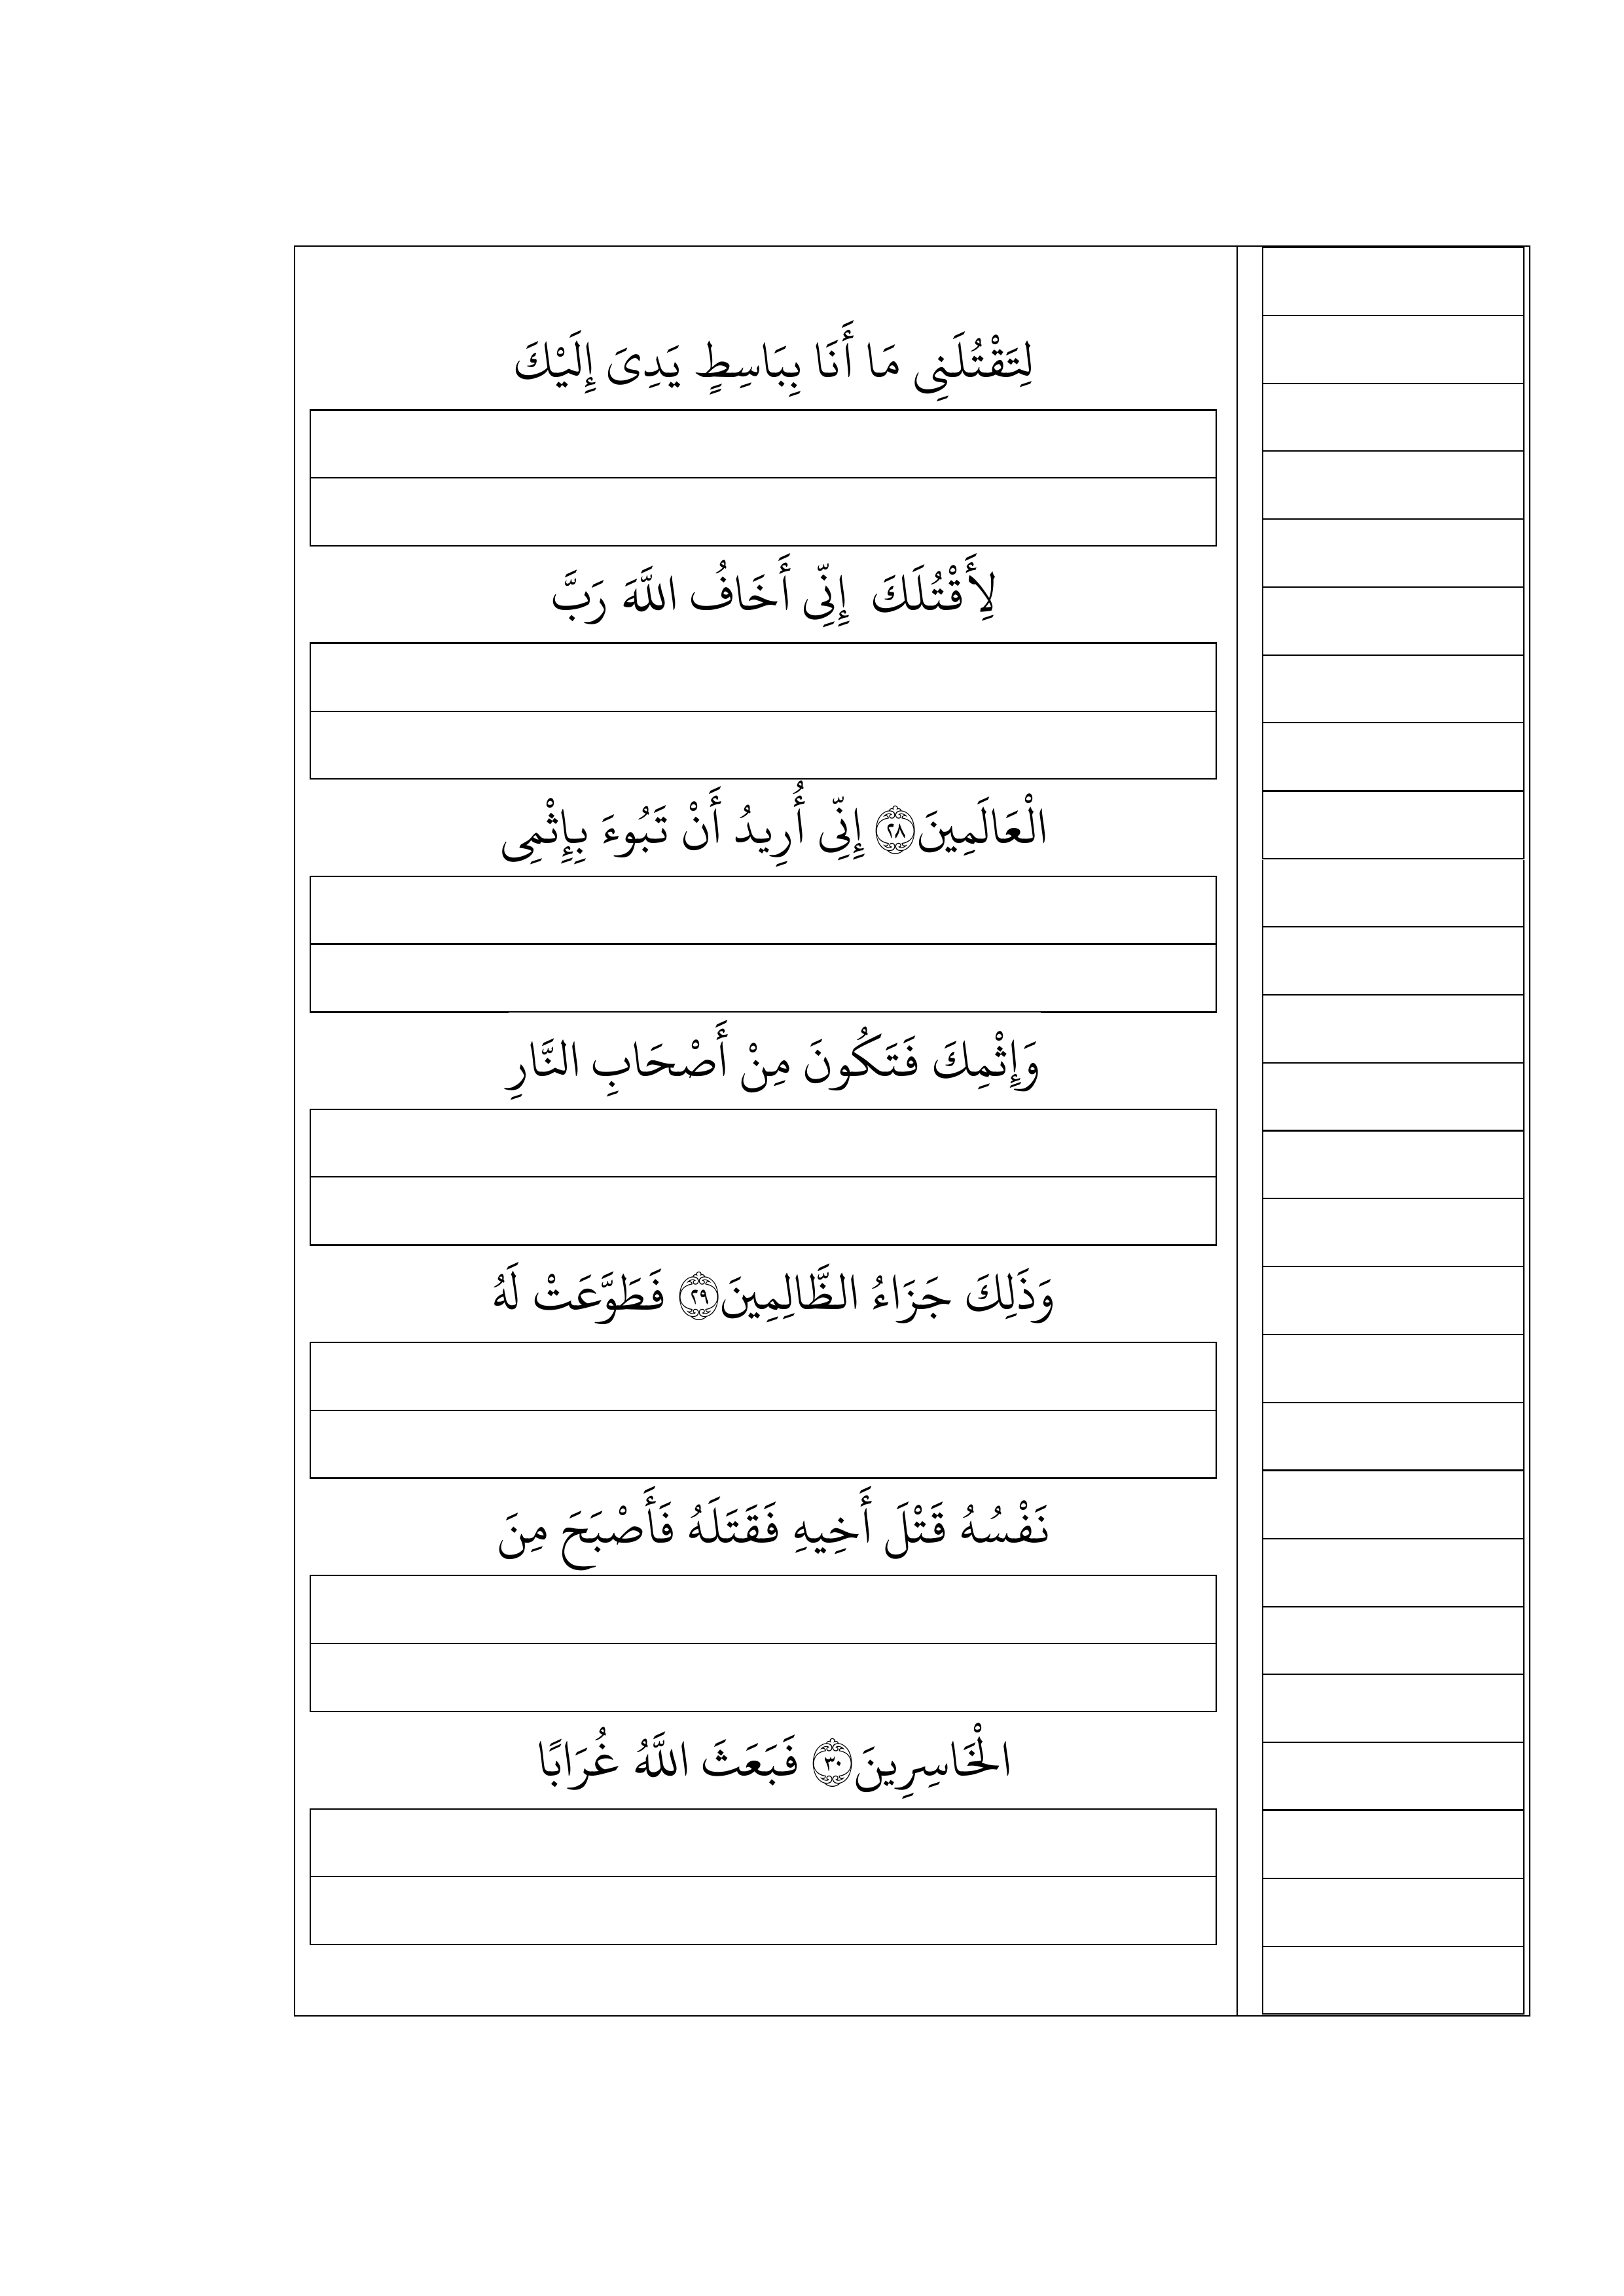 لِتَقْتُلَنِى مَا أَنَا بِبَاسِطٍ يَدِىَ إِلَيْكَ
لِأَقْتُلَكَ إِنِّى أَخَافُ اللَّهَ رَبَّ
الْعَالَمِينَ ۝٢٨ إِنِّى أُرِيدُ أَنْ تَبُوءَ بِإِثْمِى
وَإِثْمِكَ فَتَكُونَ مِنْ أَصْحَابِ النَّارِ
وَذَلِكَ جَزَاءُ الظَّالِمِينَ ۝٢٩ فَطَوَّعَتْ لَهُ
نَفْسُهُ قَتْلَ أَخِيهِ فَقَتَلَهُ فَأَصْبَحَ مِنَ
الْخَاسِرِينَ ۝٣٠ فَبَعَثَ اللَّهُ غُرَابًا